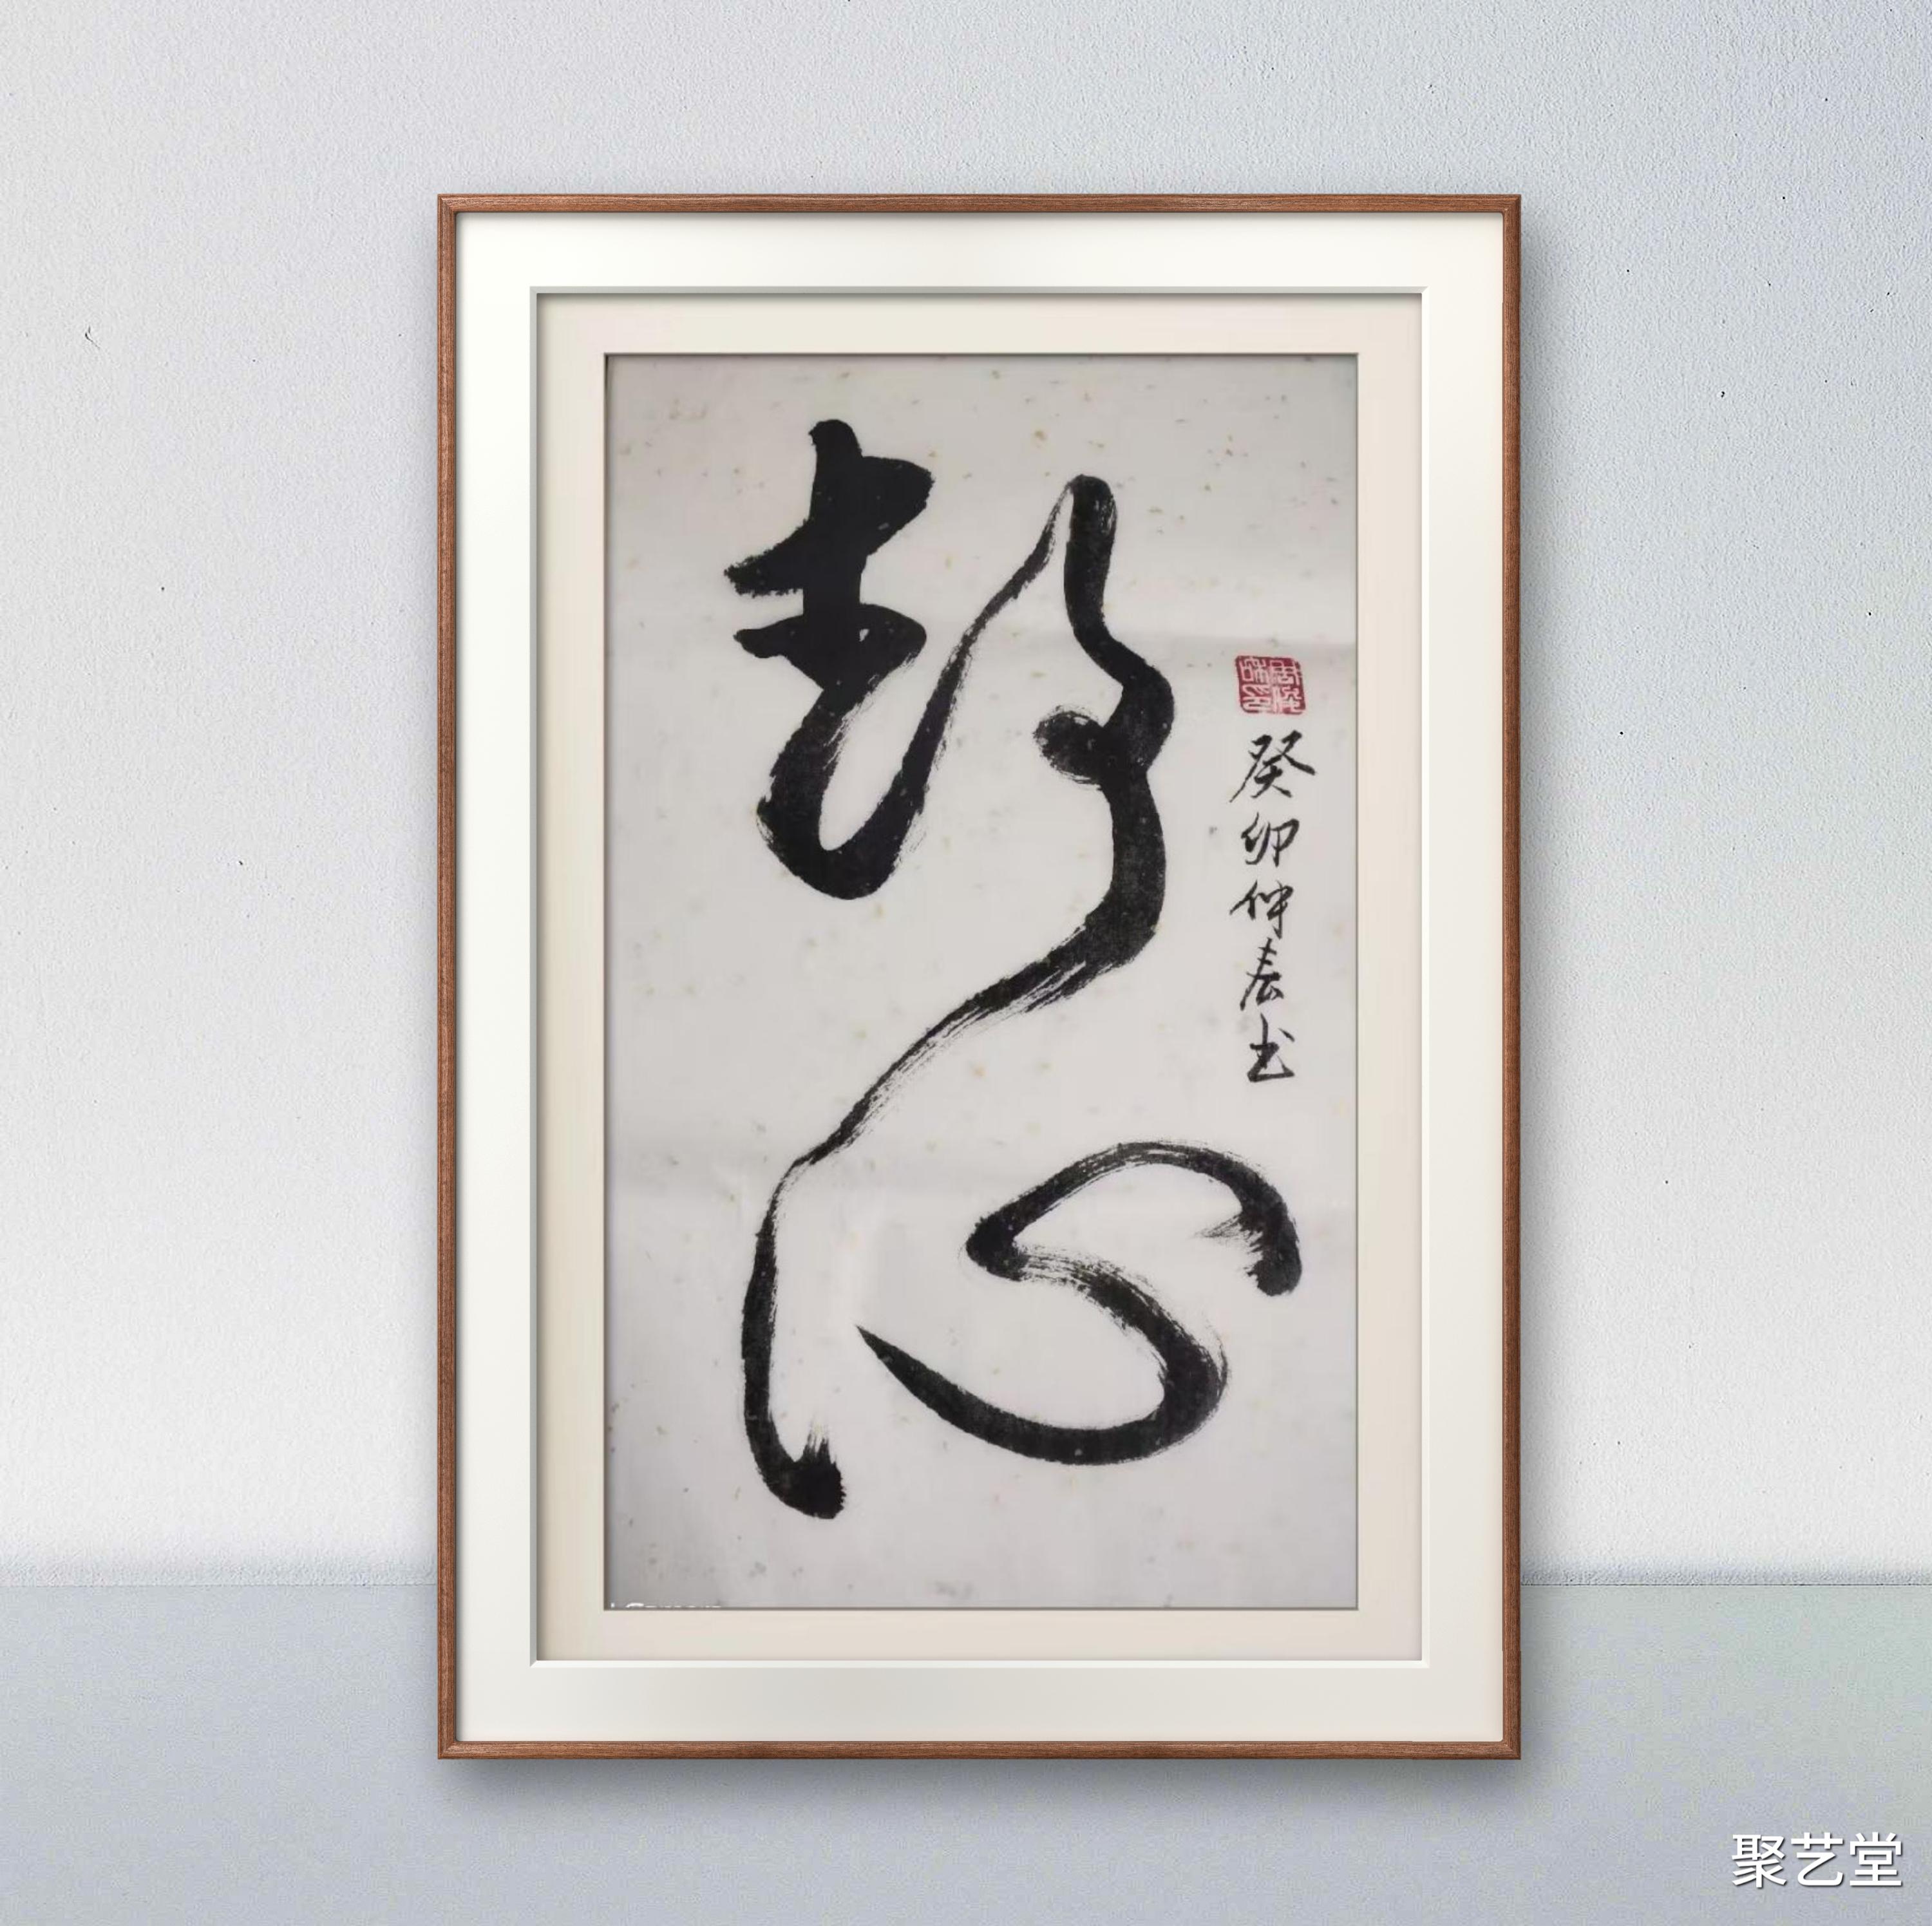 静心
癸卯仲春书
聚艺堂